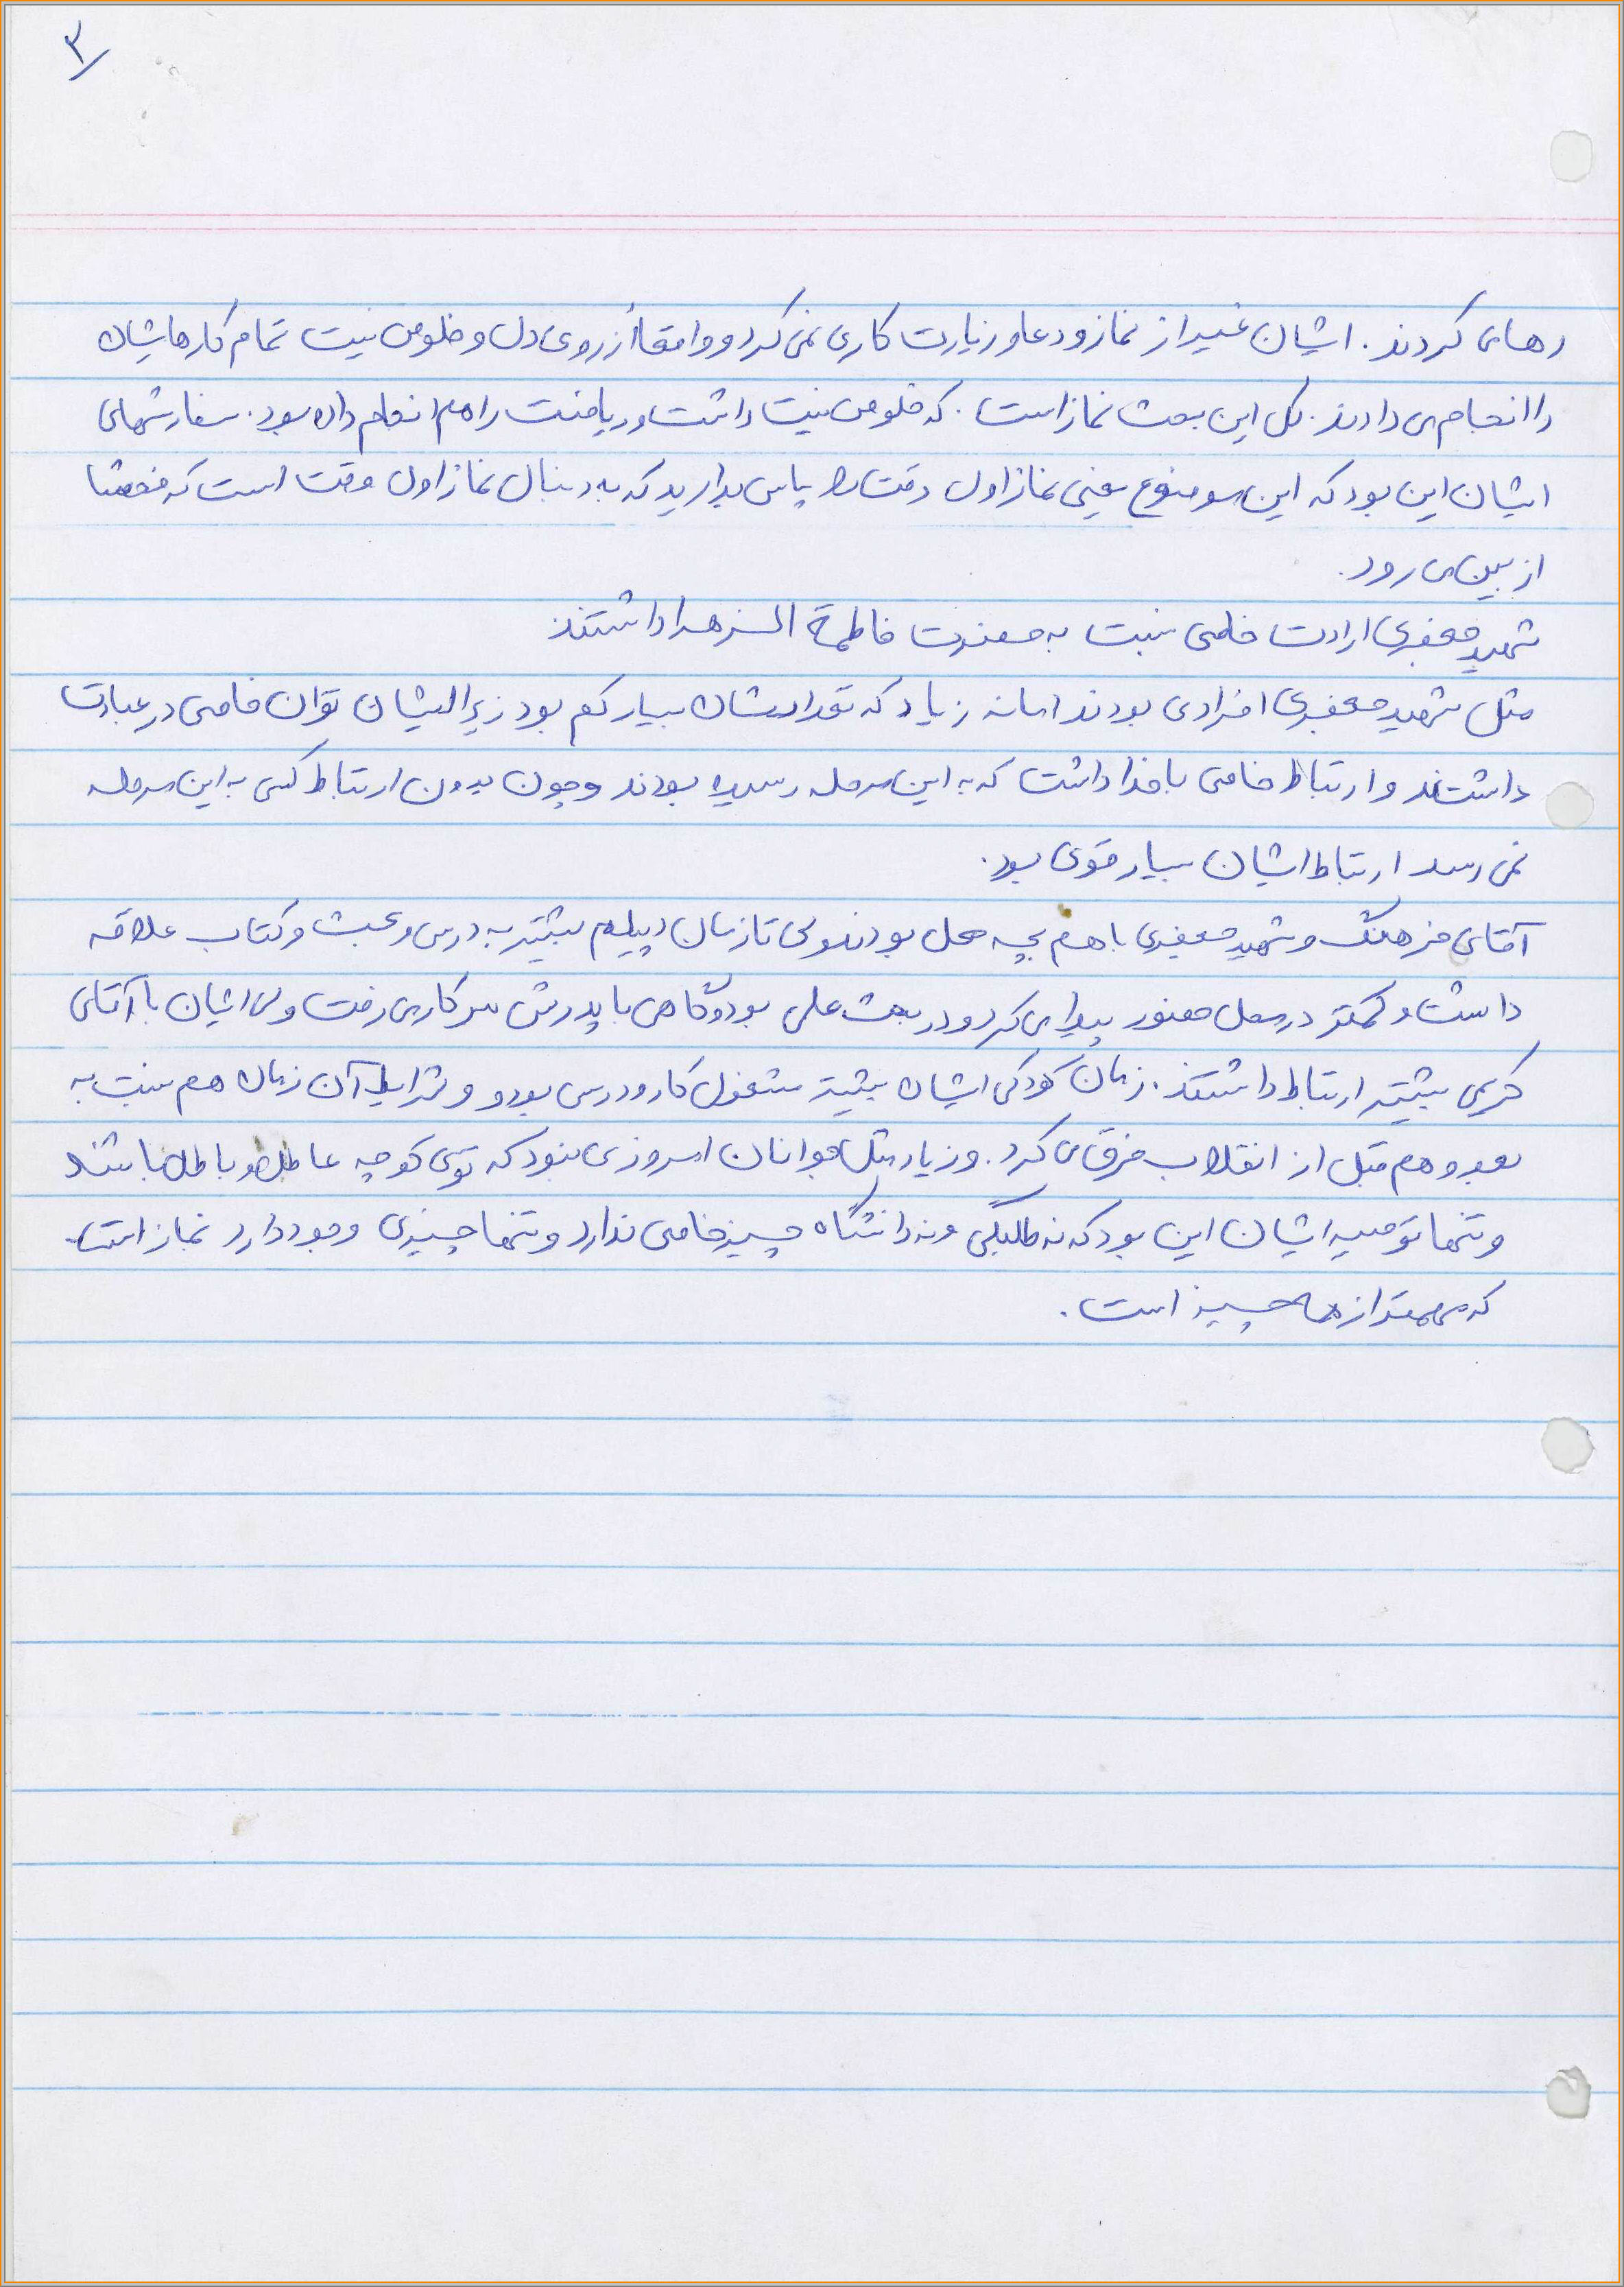 ۳
رها می کردند. ایشان غیر از نماز و دعا و زیارت کاری نمی کرد و واقعاً از روی دل و خلوص نیت تمام کارهایشان
را انجام می دادند. کل این بحث نماز است. که خلوص نیت داشت و ریاضت را هم انجام داده بود. سفارشهای
ایشان این بود که این موضوع یعنی نماز اول وقت را پاس بدارید که به دنبال نماز اول وقت است که فحشا
از بین می رود.
شهید جعفری ارادت خاصی نسبت به حضرت فاطمة الزهرا داشتند
مثل شهید جعفری افرادی بودند اما نه زیاد که تعدادشان بسیار کم بود زیرا ایشان توان خاصی در عبادت
داشتند و ارتباط خاصی با خدا داشت که به این مرحله رسیده بودند و چون بدون ارتباط کسی به این مرحله
نمی رسد ارتباط ایشان بسیار قوی بود.
آقای فرهنگ و شهید جعفری با هم بچه محل بودند ولی تا زمان دیپلم بیشتر به درس و بحث و کتاب علاقه
داشت و کمتر در محل حضور پیدا می کرد و در بحث علمی بود و گاهی با پدرش سر کار می رفت ولی ایشان با آقای
کریمی بیشتر ارتباط داشتند. زمان کودکی ایشان بیشتر مشغول کار و درس بود و و شرایط آن زمان هم نسبت به
بعد و هم قبل از انقلاب فرق می کرد. و زیاد مثل جوانان امروزی نبود که توی کوچه عاطل و باطل باشند
و تنها توصیه ایشان این بود که نه طلبگی و نه دانشگاه چیز خاصی ندارد و تنها چیزی وجود دارد نماز است.
که مهمتر از همه چیز است.